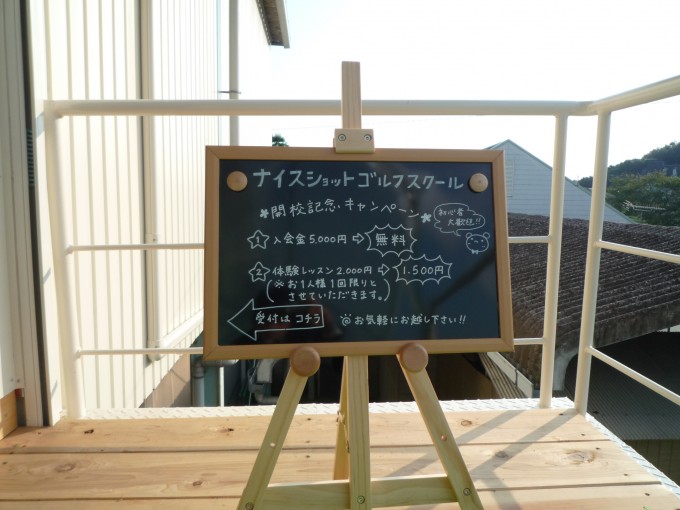 ナイスショットゴルフスクール
*開校記念・キャンペーン*
初心者
大歓迎!!
1 入会金 5,000円 ⇨ 無料
2 体験レッスン 2,000円 ⇨ 1,500円
(※お1人様1回限りと
させていただきます。)
受付は コチラ
◎お気軽にお越し下さい!!